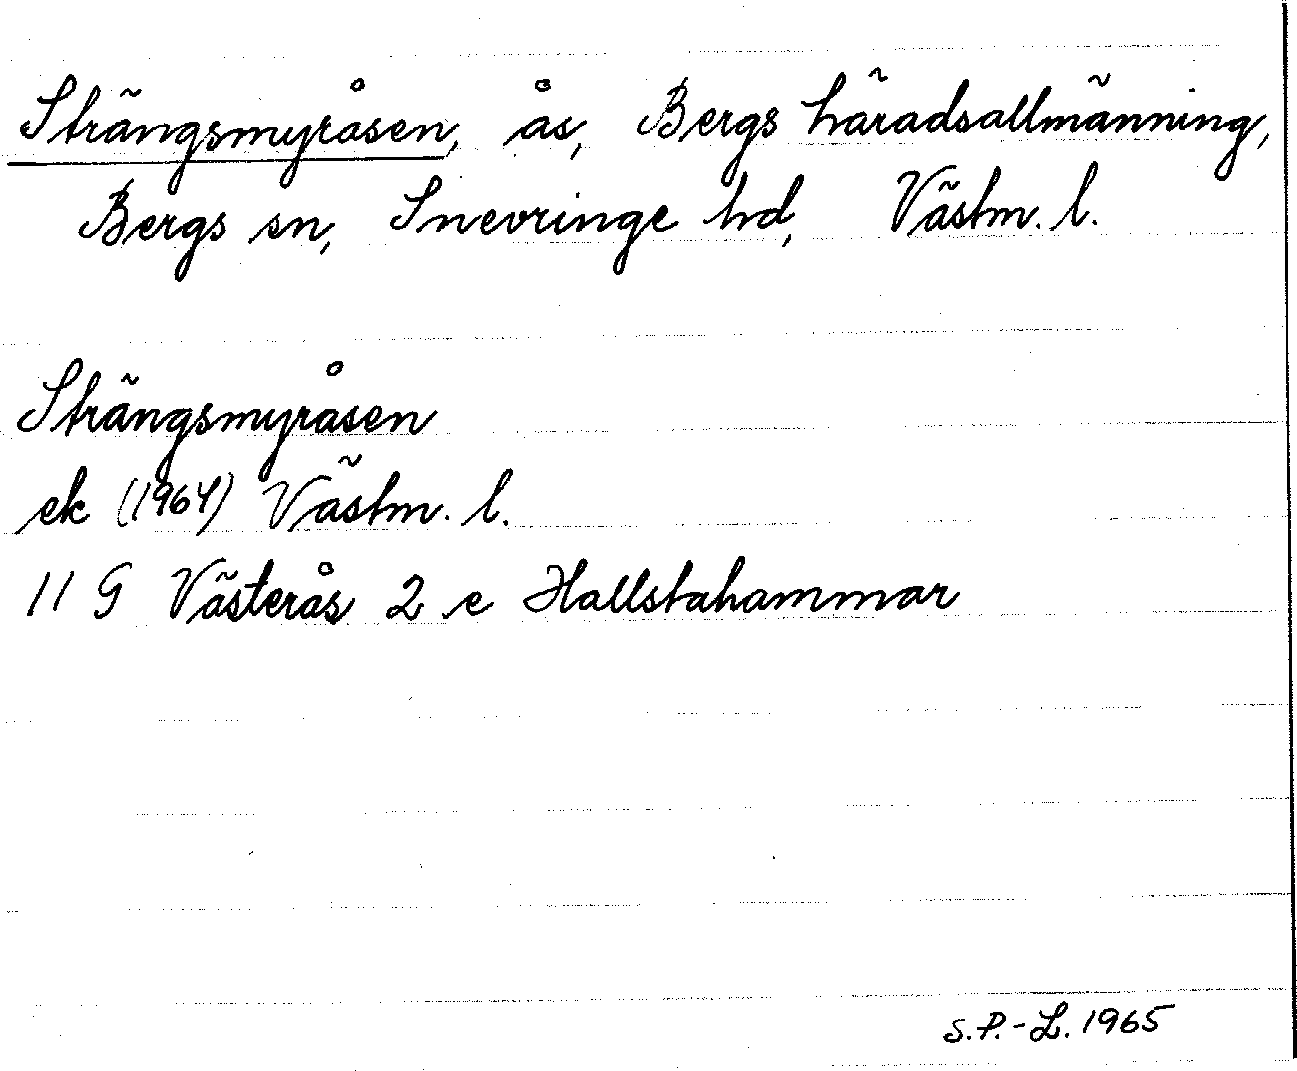 Strängsmyråsen, ås, Bergs häradsallmänning,
Bergs sn, Snevringe hd, Västm. l.
Strängsmyråsen
ek (1964) Västm. l.
11 G Västerås 2 e Hallstahammar
S.P.-L. 1965